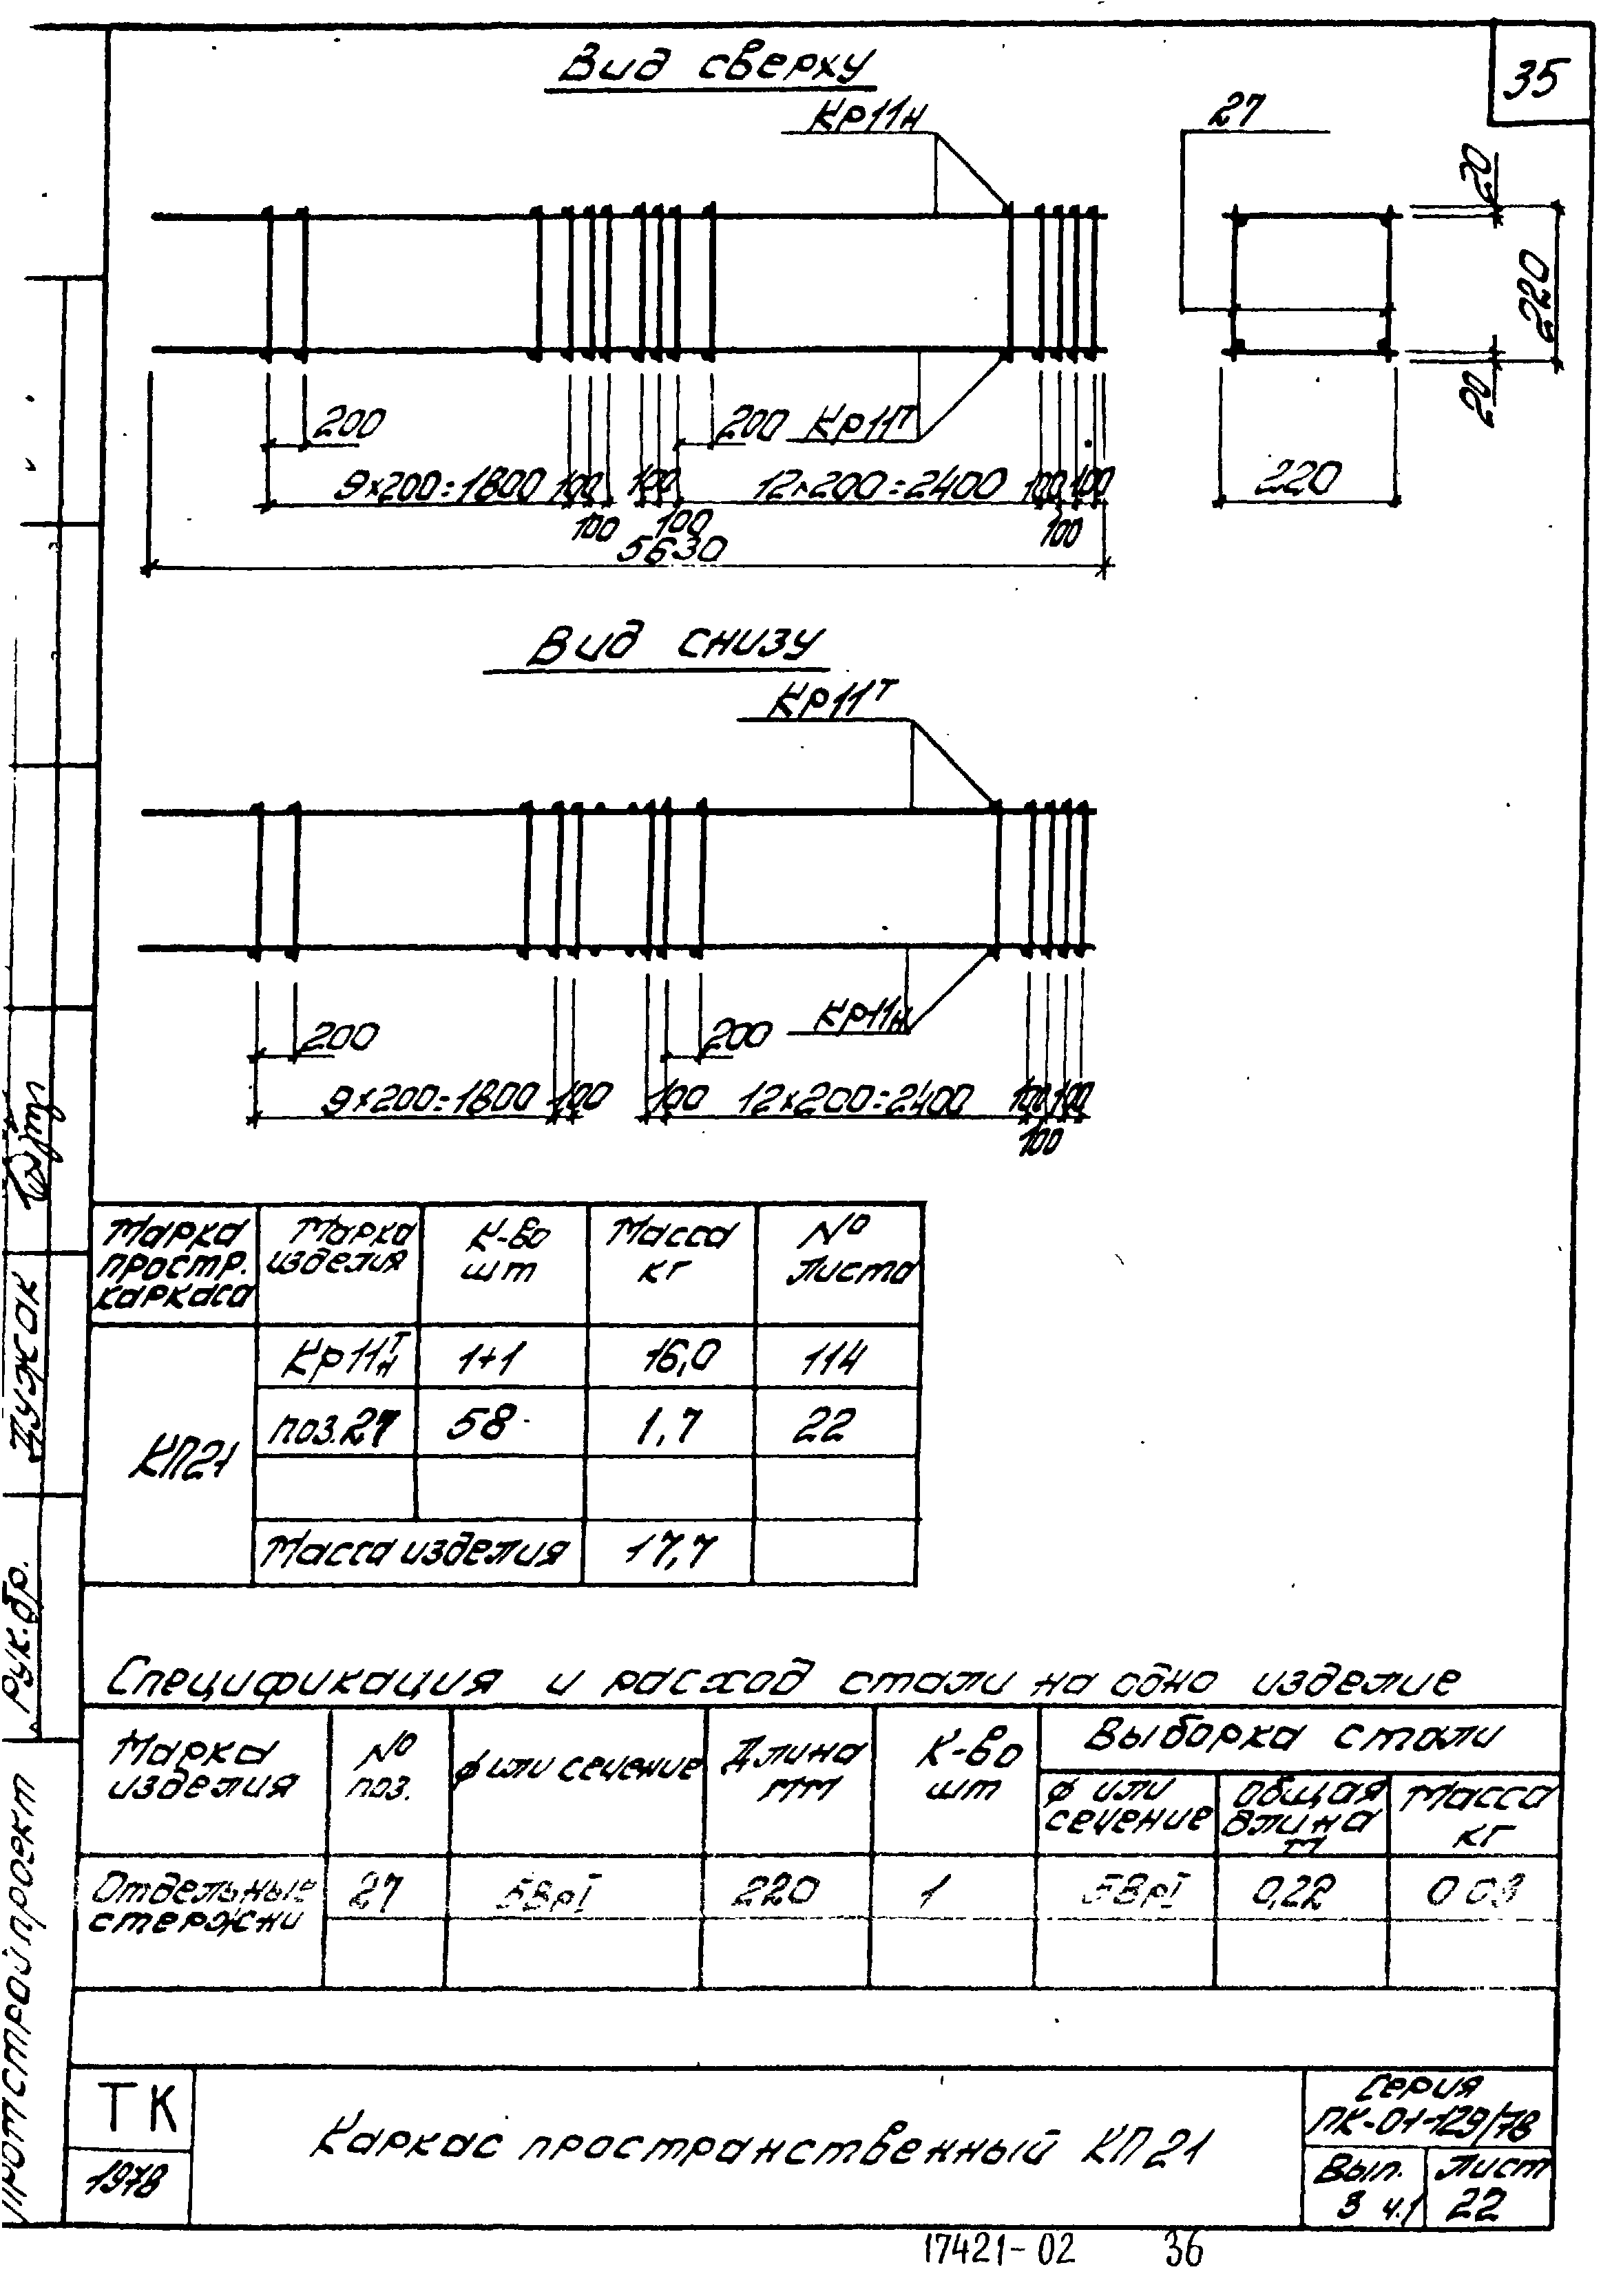 35
Вид сверху
Кр11н
27
20
220
20
220
200
200
Кр11т
9×200=1800 100 100 12×200=2400 100 100
100 100 100
5630
Вид снизу
Кр11т
Кр11н
200
200
9×200=1800 100 100 12×200=2400 100 100
100
Марка простр. каркаса
Марка изделия
К-во шт
Масса кг
№ листа
КП21
Кр11т/н 1+1 16,0 114
поз.27 58 1,7 22
Масса изделия 17,7
Спецификация и расход стали на одно изделие
Марка изделия
№ поз.
ф или сечение
Длина мм
К-во шт
Выборка стали
ф или сечение
общая длина м
Масса кг
Отдельные стержни
27 220 1 0,22
ТК
1978
Каркас пространственный КП21
Серия
ПК-01-129/78
Вып. 3 ч.1
Лист 22
17421-02 36
Рук.бр.
Дужак